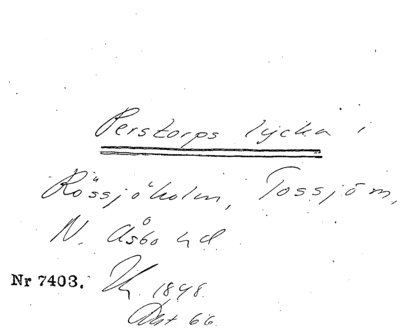 Perstorps lycka i
Rössjöholm, Tossjöm,
N. Åsbo hd.
Nr 7403. 1848.
Akt 66